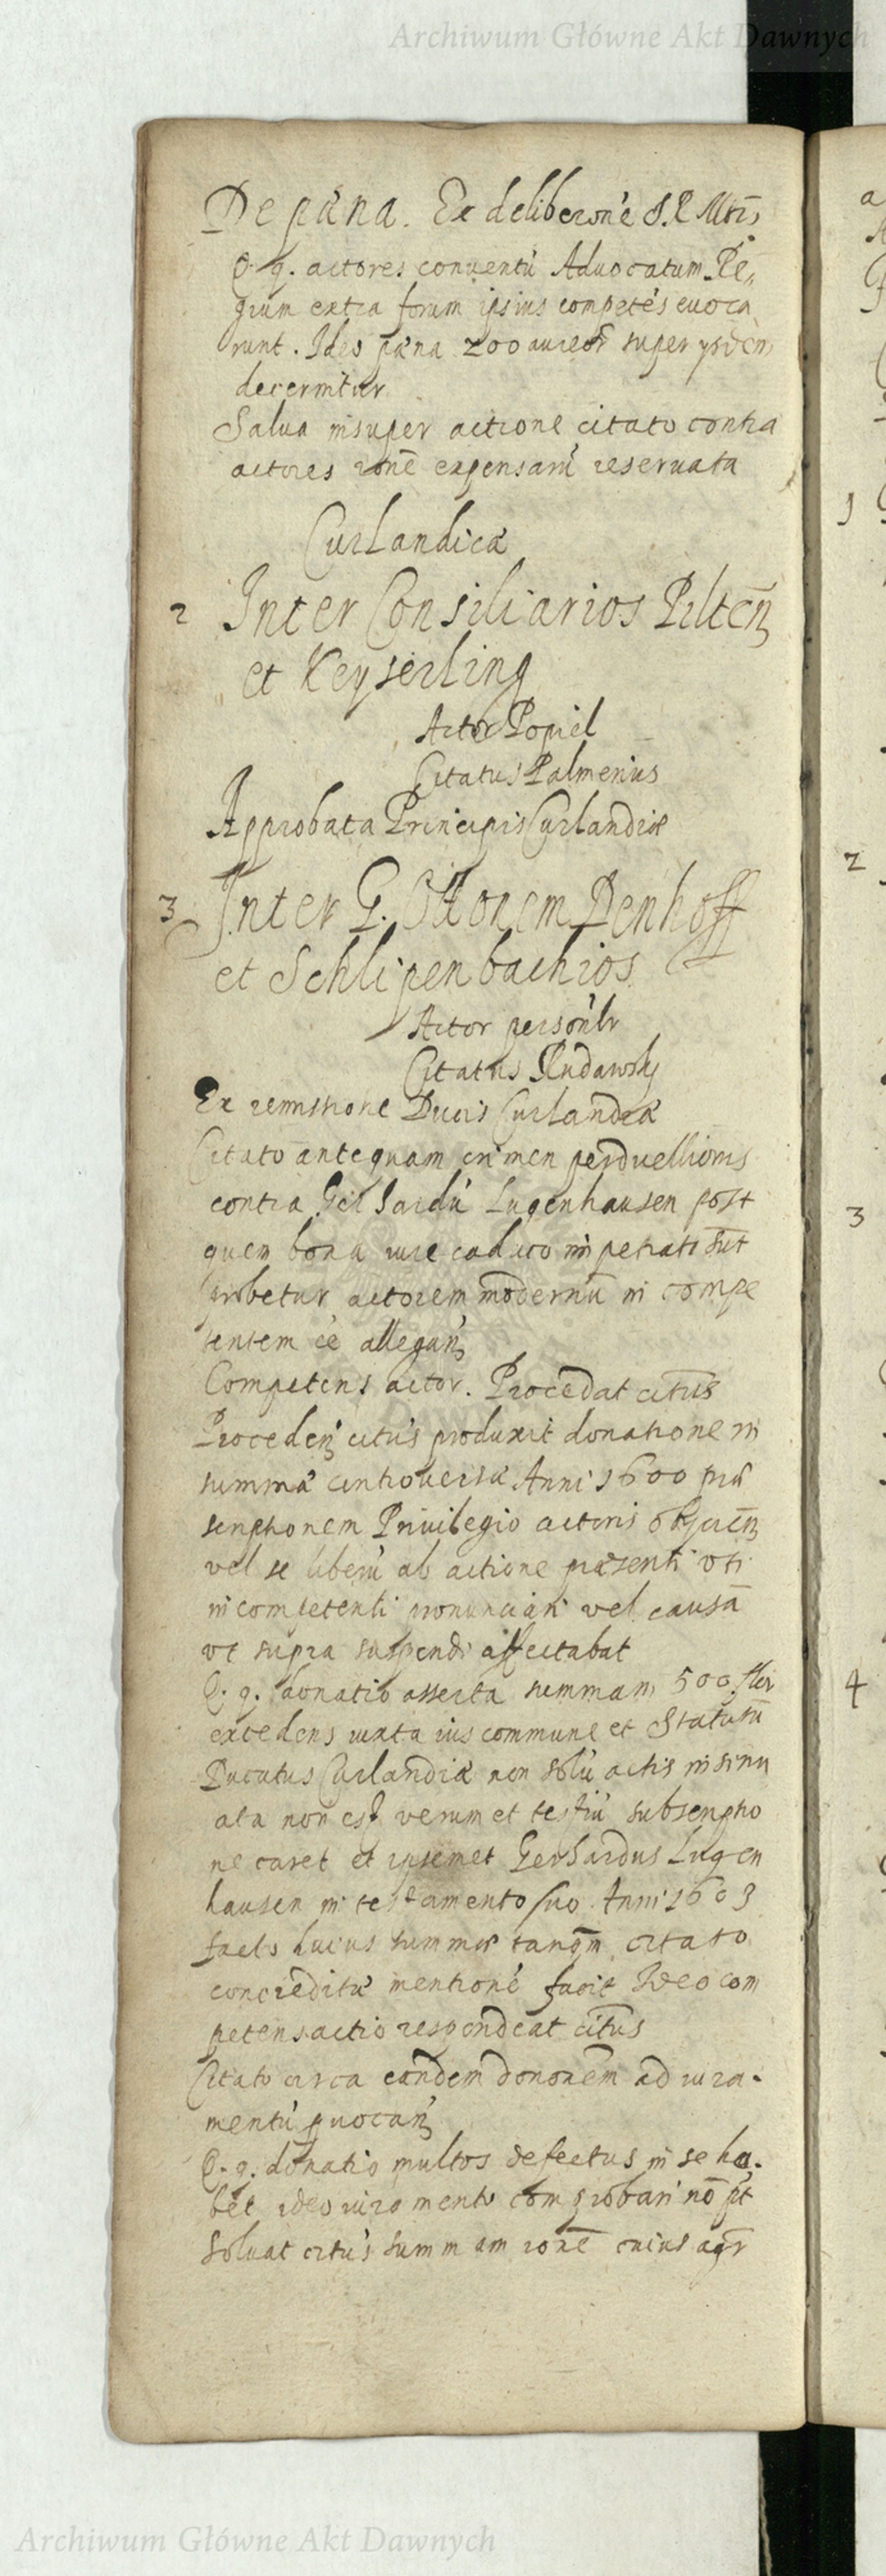 Archiwum Główne Akt Dawnych
De pæna. Ex deliberōne S.R. Mtis
Q. q. actores conventū Advocatum Re„
gium extra forum ipsius competēs evoca
runt. Ideo pæna 200 aureor super ysdem
decernitur
Salva insuper actione citato contra
actores rōne expensarū reservata
Curlandica
2 Inter Consiliarios Pilteñ
et Keyserling
Actor Popiel
Citatus Palmerius
Approbata Principis Curlandiæ
3 Inter G. Ottonem Denhoff
et Schlipenbachios
Actor persōnlr
Citatus Rudawsky
Ex remissione Ducis Curlandiæ
Citato antequam crimen perduellionis
contra Gerhardū Lugenhausen post
quem bona iure caduco impetrata sūt
probetur actorem modernū in compe
tentem ēē allegan̄
Competens actor. Procedat citūs
Proceden̄ citūs produxit donatione in
summa controversa Anni 1600
senptionem Privilegio actoris objicien̄
vel se liberū ab actione præsenti uti
incompetenti pronunciari vel causā
ut supra suspendi affectabat
Q. q. donatio asserta summam 500 fler
excedens iuxta ius commune et Statutū
Ducatus Curlandiæ non solū actis insinu
ata non est verum et testiū subscriptio
ne caret et ipsemet Gerhardus Lugen
hausen in testamento suo Anni 1603
facto huius summæ tanqm citato
concreditæ mentionē facit Ideo com
petens actio respondeat citūs
Citato circa eandem donōnem ad iura-
mentū provocan̄
Q. q. donatio multos defectus in se ha-
bet ideo iuramento comprobari nō pt
Solvat citūs summam rōnē cuius agr
1
2
3
4
Archiwum Główne Akt Dawnych